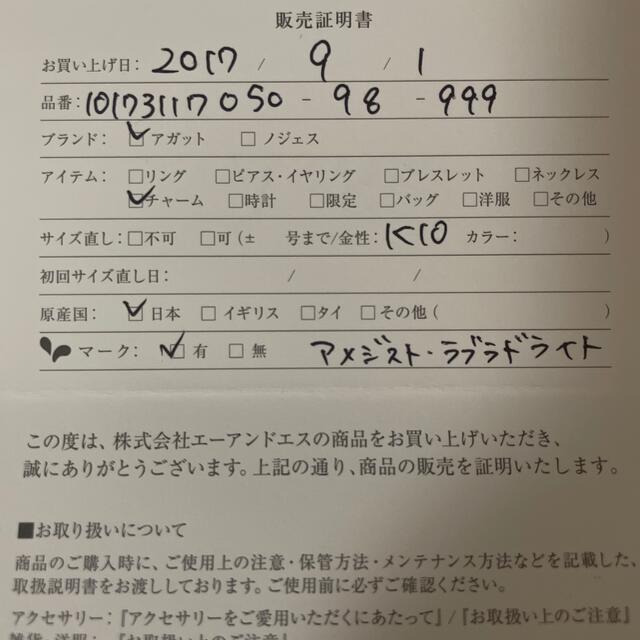 販売証明書
お買い上げ日: 2017 / 9 / 1
品番: 10173117050 - 98 - 999
ブランド: ☑アガット □ノジェス
アイテム: □リング □ピアス・イヤリング □ブレスレット □ネックレス
☑チャーム □時計 □限定 □バッグ □洋服 □その他
サイズ直し: □不可 □可 (± 号まで/金性: K10 カラー: )
初回サイズ直し日: / /
原産国: ☑日本 □イギリス □タイ □その他 ( )
マーク: ☑有 □無 アメジスト・ラブラドライト
この度は、株式会社エーアンドエスの商品をお買い上げいただき、
誠にありがとうございます。上記の通り、商品の販売を証明いたします。
■お取り扱いについて
商品のご購入時に、ご使用上の注意・保管方法・メンテナンス方法などを記載した、
取扱説明書をお渡ししております。ご使用前に必ずご確認ください。
アクセサリー:『アクセサリーをご愛用いただくにあたって』/『お取扱い上のご注意』
雑貨・洋服:『お取扱い上のご注意』